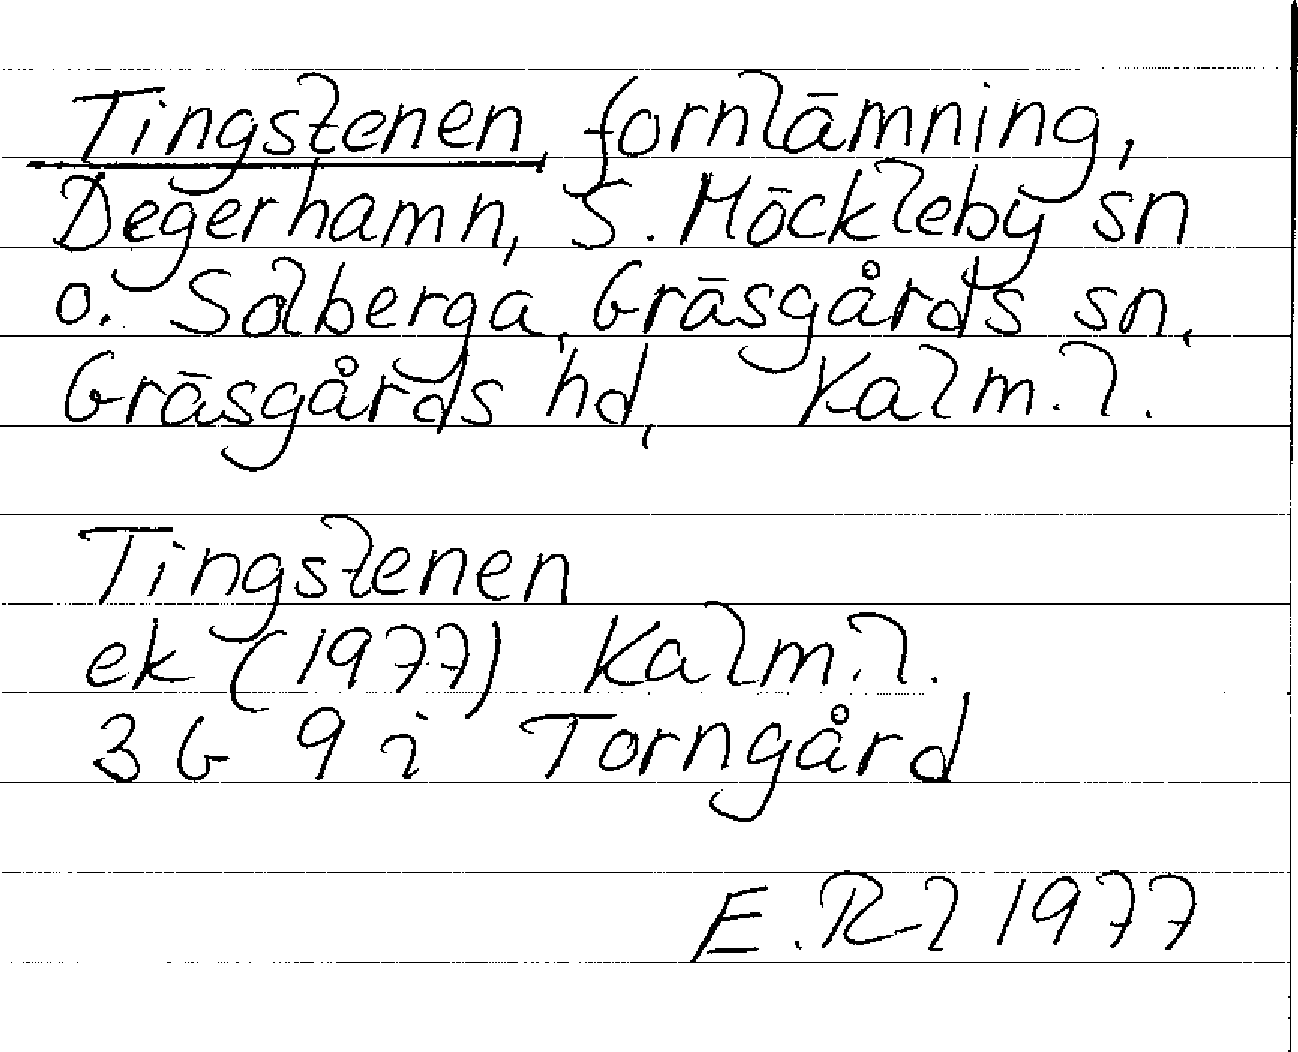 Tingstenen, fornlämning,
Degerhamn, S. Möckleby sn
o. Solberga, Gräsgårds sn,
Gräsgårds hd, Kalm. l.
Tingstenen
ek (1977) Kalm. l.
3 G 9 i Torngård
E. Rl 1977